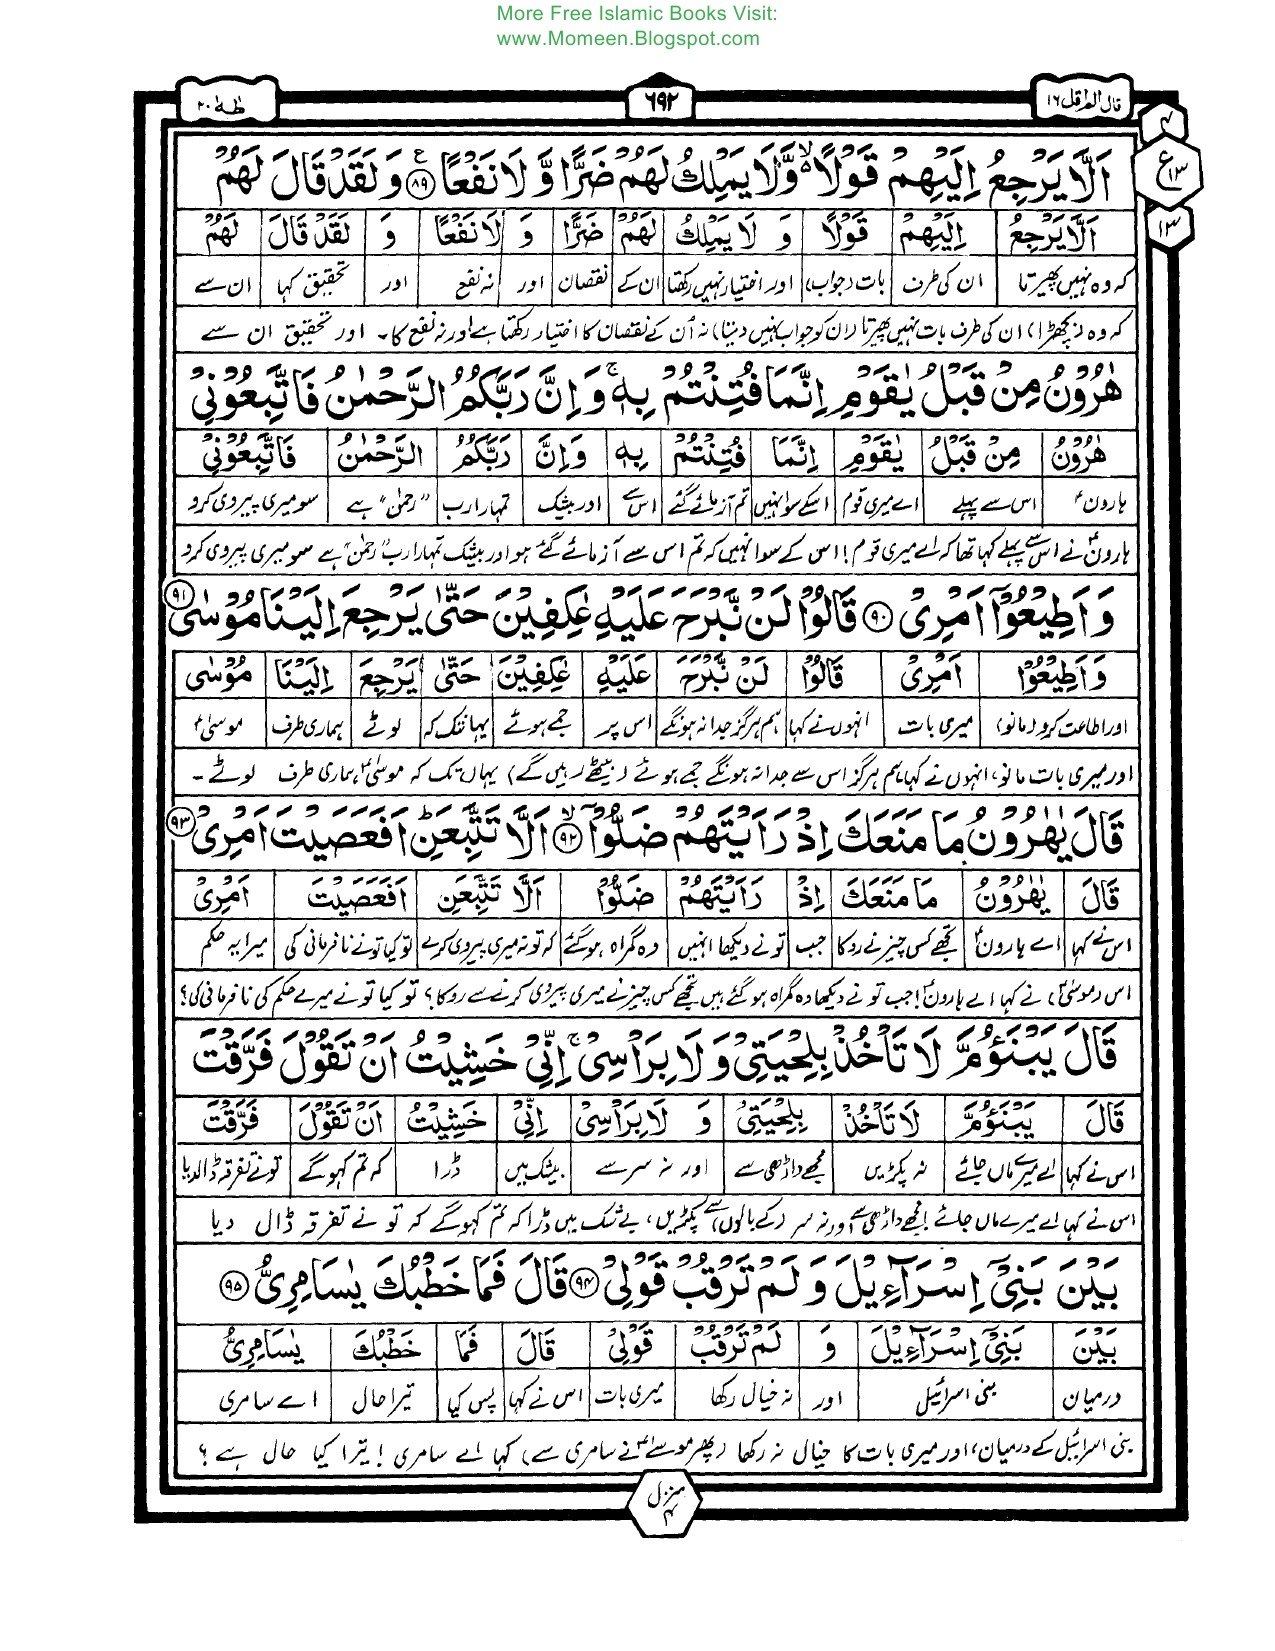 More Free Islamic Books Visit:
www.Momeen.Blogspot.com
قال الم اقل ١٦
٦٩٢
طٰهٰ ٢٠
٤
ع ١٣
١٣
اَلَّا يَرْجِعُ اِلَيْهِمْ قَوْلًا ۙ۬ وَّلَا يَمْلِكُ لَهُمْ ضَرًّا وَّ لَا نَفْعًا ۧ ﴿٨٩﴾ وَ لَقَدْ قَالَ لَهُمْ
اَلَّا يَرْجِعُ اِلَيْهِمْ قَوْلًا وَ لَا يَمْلِكُ لَهُمْ ضَرًّا وَ لَا نَفْعًا وَ لَقَدْ قَالَ لَهُمْ
کہ وہ نہیں پھیرتا ان کی طرف بات (جواب) اور اختیار نہیں رکھتا ان کے نقصان اور نہ نفع اور تحقیق کہا ان سے
کہ وہ (بچھڑا) ان کی طرف بات نہیں پھیرتا (ان کو جواب نہیں دیتا) نہ اُن کے نقصان کا اختیار رکھتا ہے اور نہ نفع کا۔ اور تحقیق ان سے
هٰرُوْنُ مِنْ قَبْلُ يٰقَوْمِ اِنَّمَا فُتِنْتُمْ بِهٖ ۚ وَ اِنَّ رَبَّكُمُ الرَّحْمٰنُ فَاتَّبِعُوْنِيْ
هٰرُوْنُ مِنْ قَبْلُ يٰقَوْمِ اِنَّمَا فُتِنْتُمْ بِهٖ وَ اِنَّ رَبَّكُمُ الرَّحْمٰنُ فَاتَّبِعُوْنِيْ
ہارونؑ اس سے پہلے اے میری قوم اسکے سوا نہیں تم آزمائے گئے اس سے اور بیشک تمہارا رب "رحمٰن" ہے سو میری پیروی کرو
ہارونؑ نے اس سے پہلے کہا تھا کہ اے میری قوم! اس کے سوا نہیں کہ تم اس سے آزمائے گئے ہو اور بیشک تمہارا رب "رحمٰن" ہے سو میری پیروی کرو
وَ اَطِيْعُوْۤا اَمْرِيْ ﴿٩٠﴾ قَالُوْا لَنْ نَّبْرَحَ عَلَيْهِ عٰكِفِيْنَ حَتّٰى يَرْجِعَ اِلَيْنَا مُوْسٰى ﴿٩١﴾
وَ اَطِيْعُوْا اَمْرِيْ قَالُوْا لَنْ نَّبْرَحَ عَلَيْهِ عٰكِفِيْنَ حَتّٰى يَرْجِعَ اِلَيْنَا مُوْسٰى
اور اطاعت کرو (مانو) میری بات انہوں نے کہا ہم ہرگز جدا نہ ہونگے اس پر جمے ہوئے یہانتک کہ لوٹے ہماری طرف موسیٰؑ
اور میری بات مانو، انہوں نے کہا ہم ہرگز اس سے جدا نہ ہونگے جمے ہوئے (بیٹھے رہیں گے) یہاں تک کہ موسیٰؑ ہماری طرف لوٹے۔
قَالَ يٰهٰرُوْنُ مَا مَنَعَكَ اِذْ رَاَيْتَهُمْ ضَلُّوْۤا ۙ ﴿٩٢﴾ اَلَّا تَتَّبِعَنِ ؕ اَفَعَصَيْتَ اَمْرِيْ ﴿٩٣﴾
قَالَ يٰهٰرُوْنُ مَا مَنَعَكَ اِذْ رَاَيْتَهُمْ ضَلُّوْا اَلَّا تَتَّبِعَنِ اَفَعَصَيْتَ اَمْرِيْ
اس نے کہا اے ہارونؑ تجھے کس چیز نے روکا جب تو نے دیکھا انہیں وہ گمراہ ہوگئے کہ تو نہ میری پیروی کرے تو کیا تو نے نافرمانی کی میرا یہ حکم
اس (موسیٰؑ) نے کہا اے ہارونؑ! جب تو نے دیکھا وہ گمراہ ہو گئے ہیں تجھے کس چیز نے میری پیروی کرنے سے روکا؟ تو کیا تو نے میرے حکم کی نافرمانی کی؟
قَالَ يَبْنَؤُمَّ لَا تَاْخُذْ بِلِحْيَتِيْ وَ لَا بِرَاْسِيْ ۚ اِنِّيْ خَشِيْتُ اَنْ تَقُوْلَ فَرَّقْتَ
قَالَ يَبْنَؤُمَّ لَا تَاْخُذْ بِلِحْيَتِيْ وَ لَا بِرَاْسِيْ اِنِّيْ خَشِيْتُ اَنْ تَقُوْلَ فَرَّقْتَ
اس نے کہا اے میرے ماں جائے نہ پکڑیں مجھے داڑھی سے اور نہ سر سے بیشک میں ڈرا کہ تم کہو گے تو نے تفرقہ ڈالدیا
اس نے کہا اے میرے ماں جائے! مجھے داڑھی سے اور نہ سر (کے بالوں) سے پکڑیں، بے شک میں ڈرا کہ تم کہوگے کہ تو نے تفرقہ ڈال دیا
بَيْنَ بَنِيْۤ اِسْرَآءِيْلَ وَ لَمْ تَرْقُبْ قَوْلِيْ ﴿٩٤﴾ قَالَ فَمَا خَطْبُكَ يٰسَامِرِيُّ ﴿٩٥﴾
بَيْنَ بَنِيْۤ اِسْرَآءِيْلَ وَ لَمْ تَرْقُبْ قَوْلِيْ قَالَ فَمَا خَطْبُكَ يٰسَامِرِيُّ
درمیان بنی اسرائیل اور نہ خیال رکھا میری بات اس نے کہا پس کیا تیرا حال اے سامری
بنی اسرائیل کے درمیان، اور میری بات کا خیال نہ رکھا (پھر موسےٰؑ نے سامری سے) کہا اے سامری! تیرا کیا حال ہے؟
منزل ٤